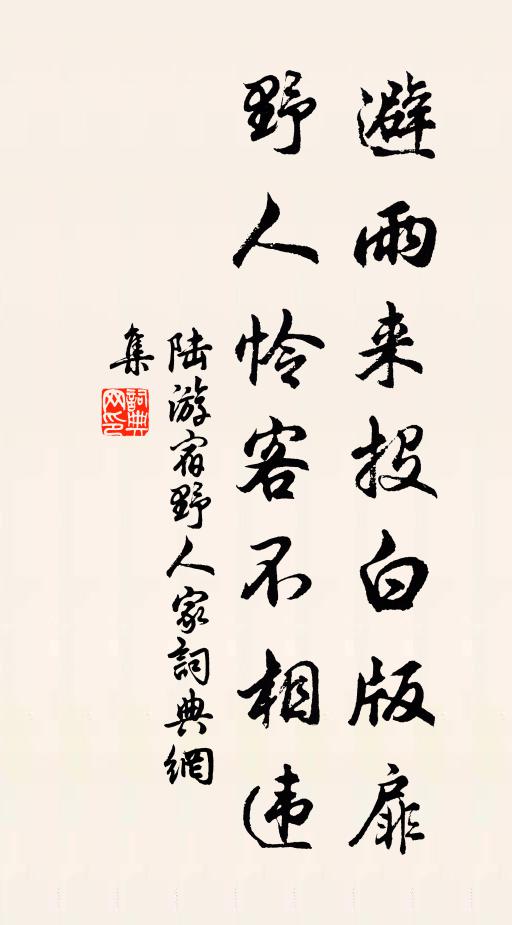 避雨来投白版扉
野人怜客不相违
陆游宿野人家詞典網
集
詞典
网印